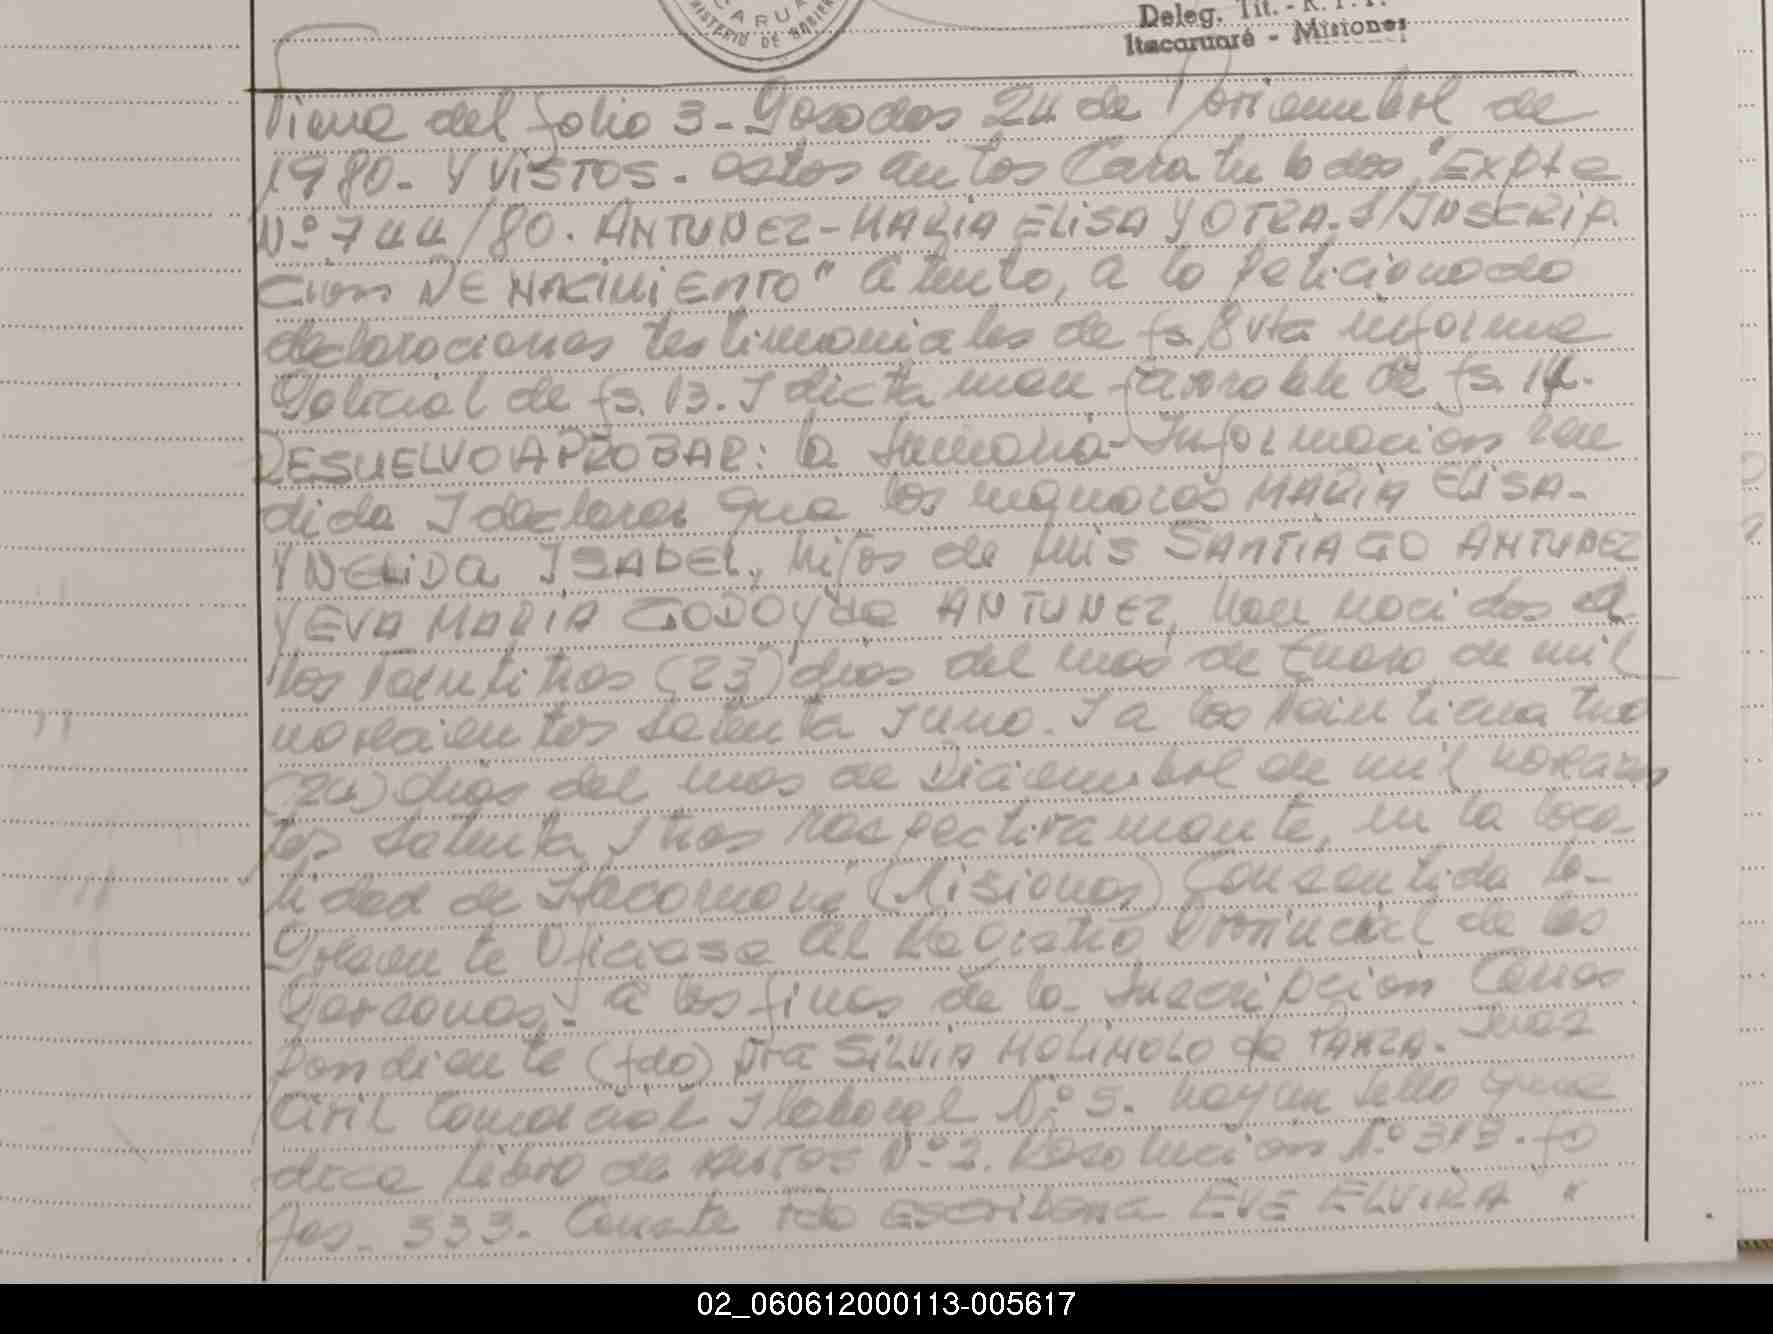 CARUA
MISTERIO DE GOBIER
Deleg. Tit. - R. P. P.
Itacaruaré - Misiones
Viene del folio 3 - Posadas 24 de Noviembre de
1980. Y VISTOS. estos autos Caratulados "Expte
Nº 744/80. ANTUNEZ - MARIA ELISA Y OTRA. S/INSCRIP
Cion DE NACIMIENTO" Atento, a lo peticionado
declaraciones testimoniales de fs. 8 vta informe
Policial de fs. 13. I dictamen favorable de fs. 14.
RESUELVO APROBAR: la sumaria-Informacion ren
dida I declarar que los menores MARIA ELISA-
Y NELIDA ISABEL, hijos de LUIS SANTIAGO ANTUNEZ
Y EVA MARIA GODOY de ANTUNEZ, han nacidos a
los veintitres (23) dias del mes de Enero de mil
novecientos setenta I uno. I a los veinticuatro
(24) dias del mes de Diciembre de mil novecien
tos setenta I tres respectivamente, en la loca-
lidad de Itacaruaré (Misiones) Consentida la-
Presente Oficiese al Registro Provincial de las
Personas. a los fines de la Inscripcion Corres
pondiente (fdo) Dra SILVIA de TARZA. Juez
Civil Comercial I Laboral Nº 5. hay un sello que
dice Libro de Autos Nº 2. Resolucion Nº 313. fo
jas. 333. Conste fdo Escribana EVE ELVIRA "
02_060612000113-005617